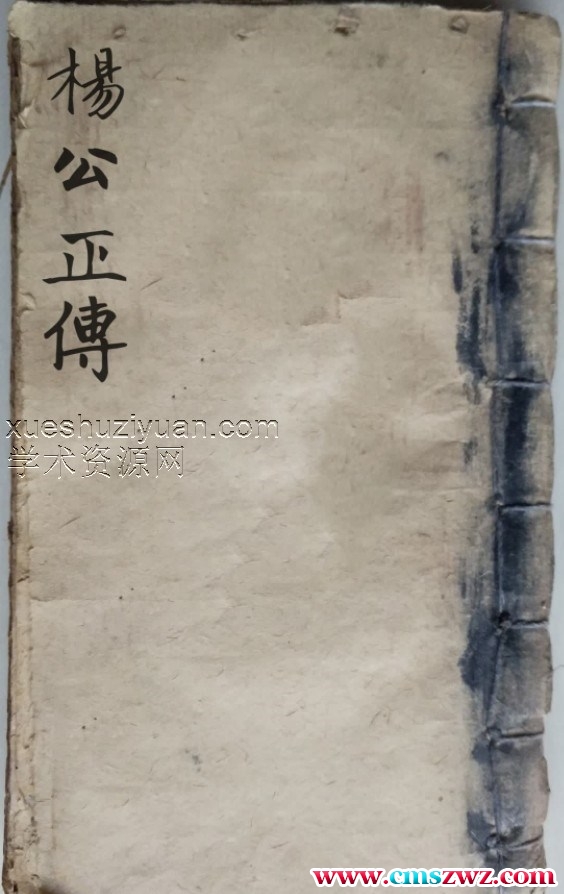 楊公正傳
xueshuziyuan.com
学术资源网
www.cmszwz.com